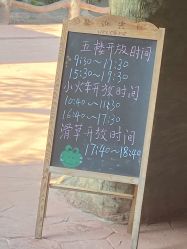 五楼开放时间
9:30~11:30
15:30~19:30
小火车开放时间
10:40~11:30
16:40~17:30
滑草开放时间
17:40~18:40